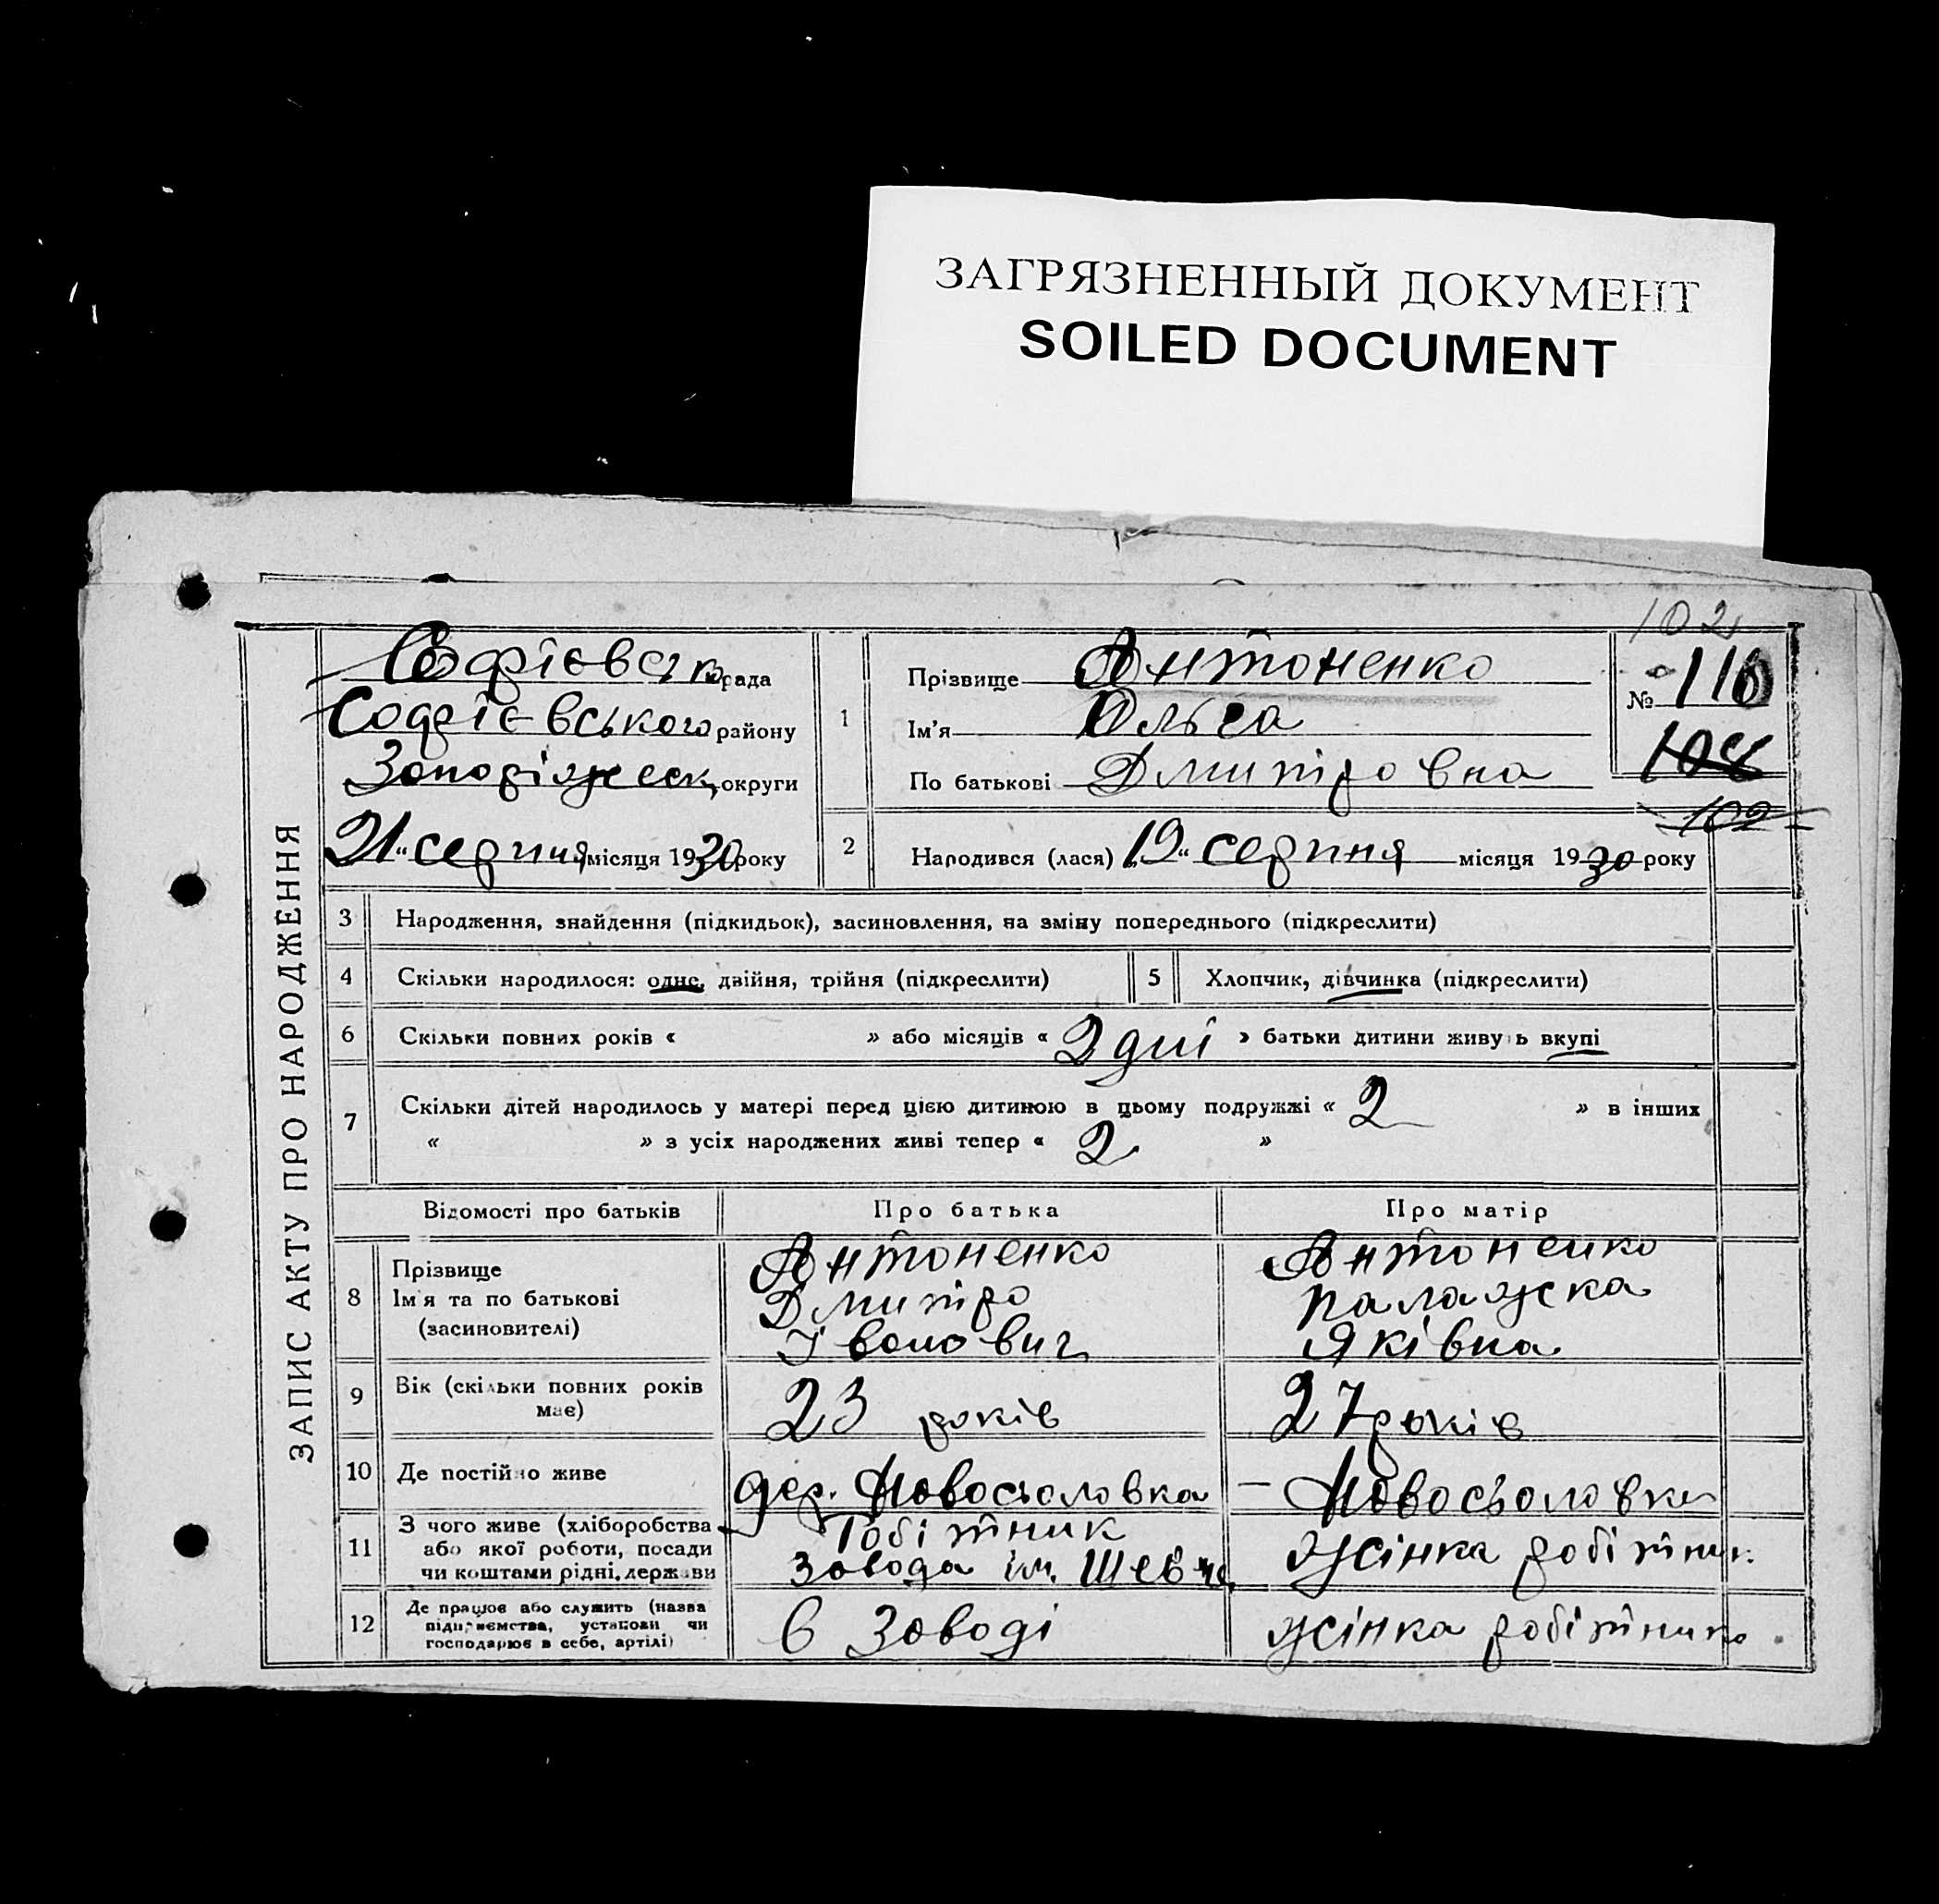 ЗАГРЯЗНЕННЫЙ ДОКУМЕНТ
SOILED DOCUMENT
102
ЗАПИС АКТУ ПРО НАРОДЖЕННЯ
Софієвська рада
Софієвського району
Запоріжськ. округи
"21" серпня місяця 1930 року
1
Прізвище Антоненко
Ім'я Ольга
По батькові Дмитровна
№ 110
108
102
2
Народився (лася) "19" серпня місяця 1930 року
3 Народження, знайдення (підкидьок), засиновлення, на зміну попереднього (підкреслити)
4 Скільки народилося: одне, двійня, трійня (підкреслити)
5 Хлопчик, дівчинка (підкреслити)
6 Скільки повних років « » або місяців « 2 дні » батьки дитини живуть вкупі
7 Скільки дітей народилось у матері перед цією дитиною в цьому подружжі « 2 » в інших
« » з усіх народжених живі тепер « 2 »
Відомості про батьків Про батька Про матір
8
Прізвище
Ім'я та по батькові
(засиновителі)
Антоненко
Дмитро
Іванович
Антоненко
Палажка
Яківна
9 Вік (скільки повних років
має)
23 років
27 років
10 Де постійно живе
дер. Новосьоловка
— Новосьоловка
11
З чого живе (хліборобства
або якої роботи, посади
чи коштами рідні, держави
Робітник
завода ім. Шевч.
Жінка робітник.
12
Де працює або служить (назва
підприємства, установи чи
господарює в себе, артілі)
в заводі
жінка робітника